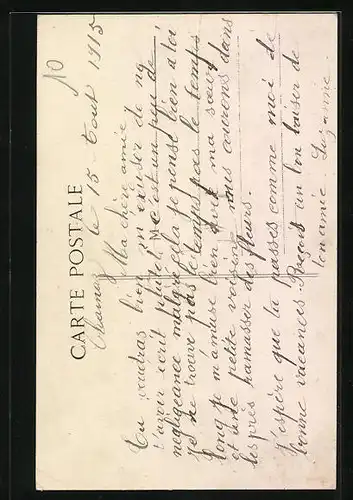 10
CARTE POSTALE
le 15 Aout 1915
Ma chère amie
Tu voudras bien m'excuser de ne
t'avoir écrit plutôt, c'est un peu de
negligeance malgré cela je pense bien à toi
Je ne trouve pas le temps
long je m'amuse bien avec ma sœur
et une petite voisine nous courons dans
les près ramasser des fleurs.
J'espère que tu passes comme moi de
bonne vacances Reçois un bon baiser de
ton amie